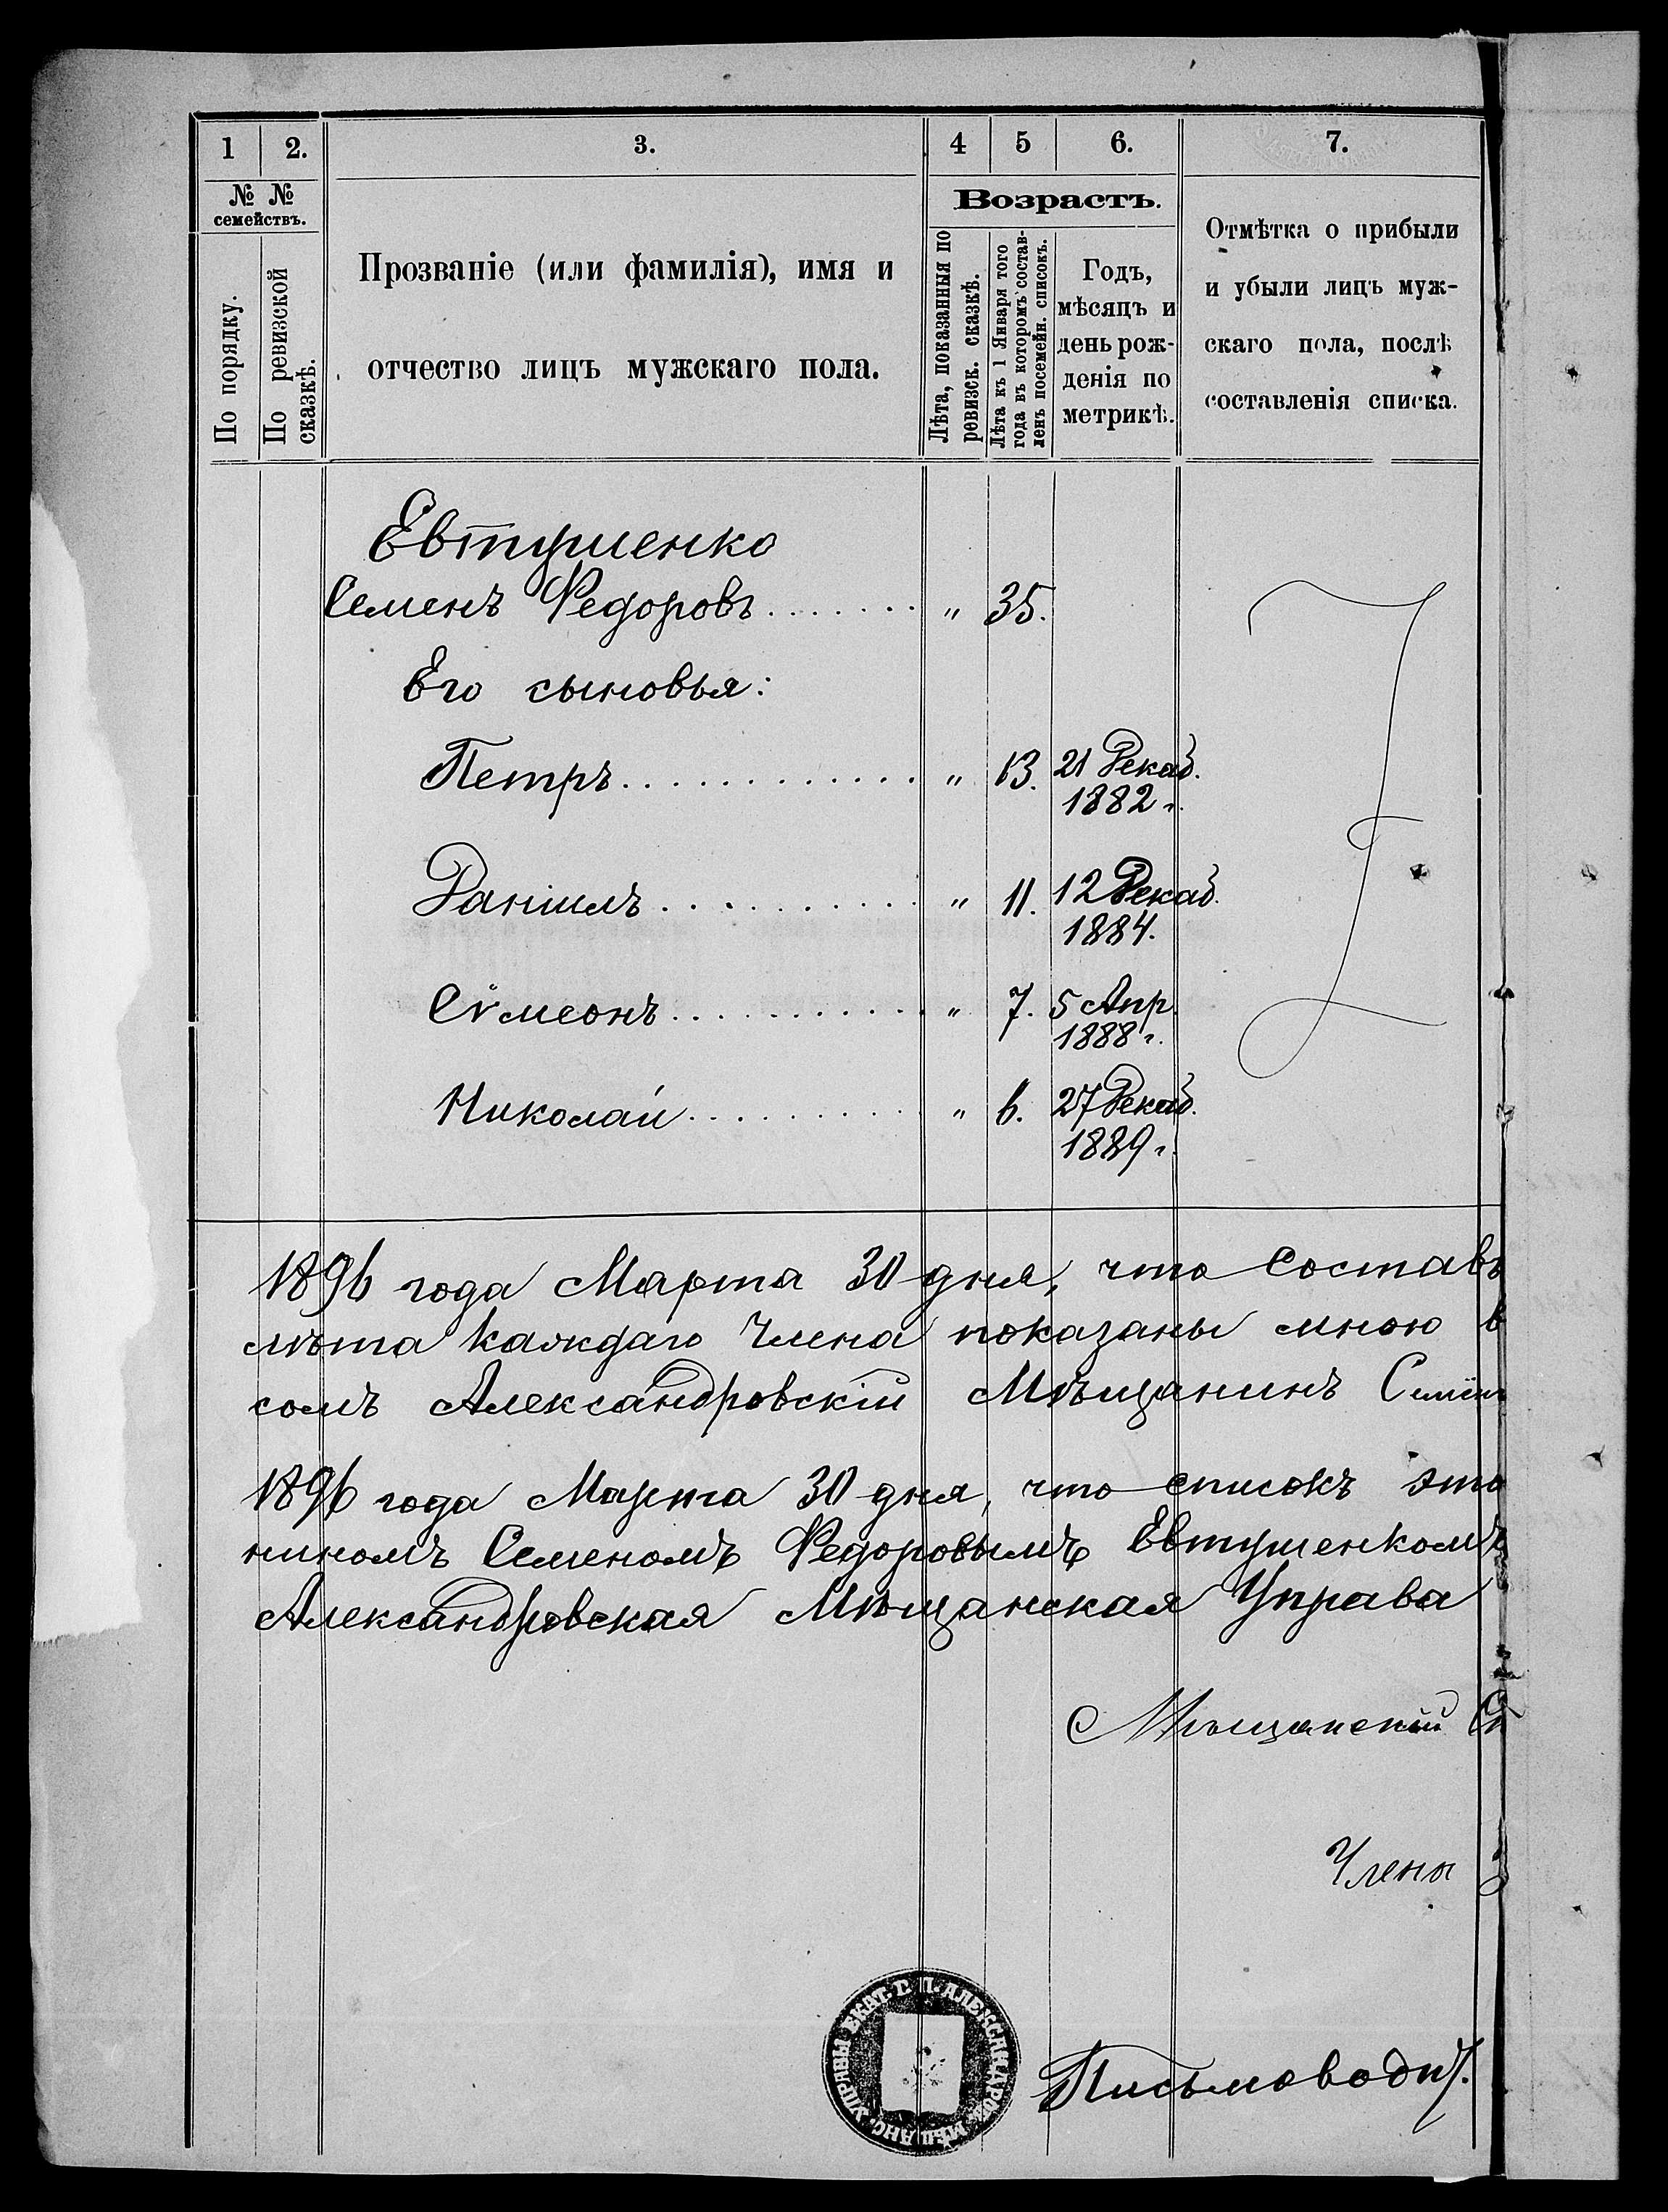 1 2. 3. 4 5 6. 7.
№ №
семействъ.
По порядку.
По ревизской
сказкѣ.
Прозваніе (или фамилія), имя и
отчество лицъ мужскаго пола.
Возрастъ.
Лѣта, показанныя по
ревизск. сказкѣ.
Лѣта къ 1 Января того
года въ которомъ состав-
ленъ посемейн. списокъ.
Годъ,
мѣсяцъ и
день рож-
денія по
метрикѣ.
Отмѣтка о прибыли
и убыли лицъ муж-
скаго пола, послѣ
составленія списка.
Евтушенко
Семенъ Федоровъ . . . . . . . " 35.
Его сыновья:
Петръ . . . . . . . . . . . . " 13. 21 Декаб.
1882 г.
Даніилъ . . . . . . . . . . . " 11. 12 Декаб.
1884.
Сѵмеонъ . . . . . . . . . . . " 7. 5 Апр.
1888 г.
Николай . . . . . . . . . . " 6. 27 Декаб.
1889 г.
1896 года Марта 30 дня, что составъ
лѣта каждаго члена показаны мною в
сомъ Александровскій Мѣщанинъ Семен
1896 года Марта 30 дня, что списокъ это
ниномъ Семеномъ Федоровымъ Евтушенкомъ
Александровская Мѣщанская Управа
Мѣщанскій Ст
Члены
Письмовод
УПРАВЫ ЕКАТ. Г. П. АЛЕКСАНДРОВ. МѢЩАНС.